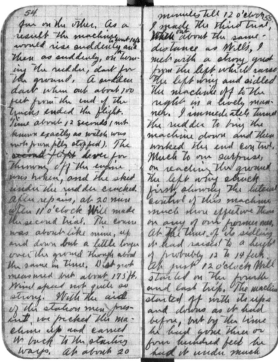 54
gun on the other. As a
result the machine would
rise suddenly to about 10 ft.
then as suddenly, on turn-
ing the rudder, dart for
the ground. A sudden
dart when out about 100
feet from the end of the
track ended the flight.
Time about 12 seconds (not
known exactly as watch was
not promptly stopped). The
lever for
throwing off the engine
was broken, and the skid
under the rudder cracked.
After repairs, at 20 min
after 11 o'clock Will made
the second trial. The course
was about like mine, up
and down but a little longer
over the ground though about
the same in time. Dist not
measured but about 175 ft.
Wind speed not quite so
strong. With the aid
of the station men pres-
ent, we picked the ma-
chine up and carried
it back to the starting
ways. At about 20
minutes till 12 o'clock
I made the third trial.
When out about the same
distance as Will's, I
met with a strong gust
from the left which raised
the left wing and sidled
the machine off to the
right in a lively man-
ner. I immediately turned
the rudder to bring the
machine down and then
worked the end control.
Much to our surprise,
on reaching the ground
the left wing struck
first, showing the lateral
control of this machine
much more effective than
on any of our former ones.
At the time of its sidling
it had raised to a height
of probably 12 to 14 feet.
At just 12 o'clock Will
started on the fourth
and last trip. The machine
started off with its ups
and downs as it had
before, but by the time
he had gone three or
four hundred feet he
had it under much